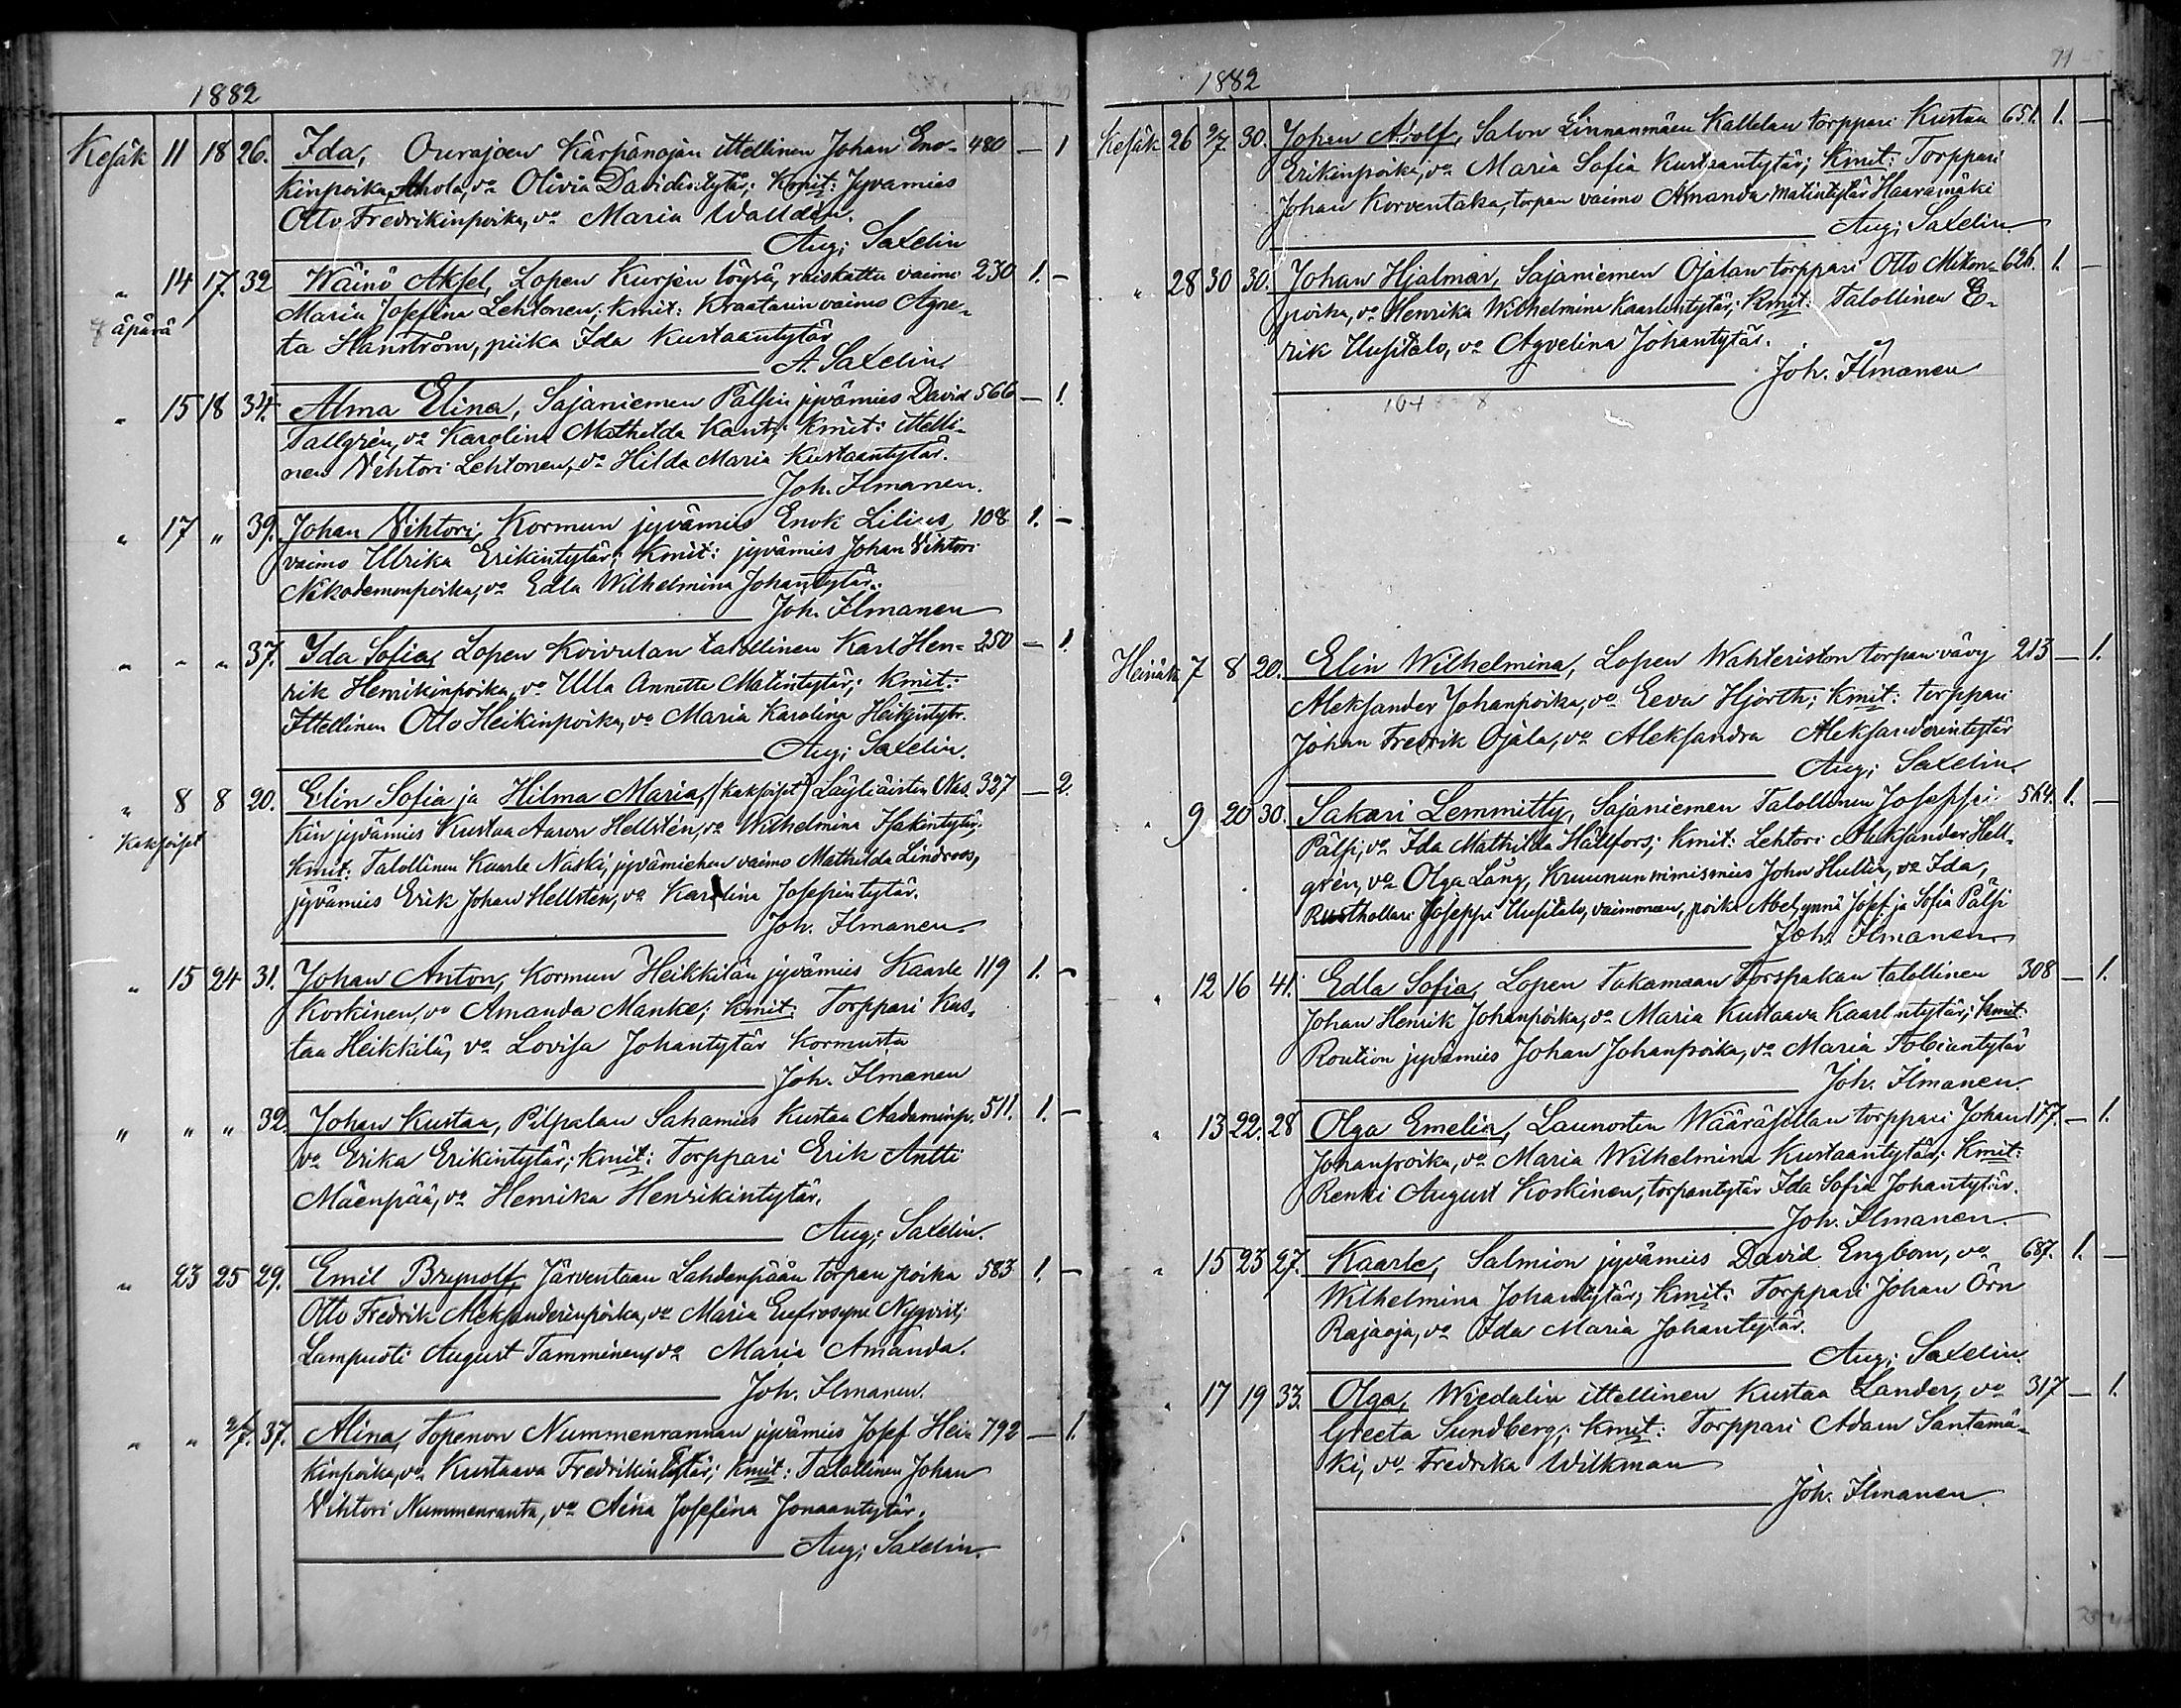 1882
Kesäk 11 18 26. Ida, Ourajoen Kärpänojan ittellinen Johan Eno- 480 — 1
kinpoika Ahola, vo Olivia Davidintytär; Kmit: Jyvämies
Otto Fredrikinpoika, vo Maria Walldén.
Aug; Saxelin
" 14 17. 32 Wäinö Aksel, Lopen Kurjen löysä, raiskattu vaimo 230 1. –
äpärä Maria Josefina Lehtonen; Kmit: Kraatarin vaimo Agne-
ta Hanström, piika Ida Kustaantytär
A. Saxelin.
" 15 18 34. Alma Elina, Sajaniemen Pälsin jyvämies David 566 — 1.
Tallgrén, vo Karolina Mathilda Kant; Kmit: ittelli-
nen Vihtori Lehtonen, vo Hilda Maria Kustaantytär.
Joh. Ilmanen.
" 17 " 39. Johan Vihtori, Kormun jyvämies Enok Lilius, 108 1. –
vaimo Ulrika Erikintytär; Kmit: jyvämies Johan Vihtori
Nikodemonpoika, vo Edla Wilhelmina Johantytär.
Joh. Ilmanen
" " " 37. Ida Sofia, Lopen Koivulan talollinen Karl Hen- 250 — 1.
rik Henrikinpoika, vo Ulla Annette Matintytär; Kmit:
Ittellinen Otto Heikinpoika, vo Maria Karolina Heikintytr.
Aug; Saxelin.
" 8 8 20. Elin Sofia ja Hilma Maria, (kaksoiset) Läyliäisten Nas- 327 — 2.
Kaksoiset kin jyvämies Kustaa Aaron Hellstén, vo Wilhelmina Isakintytär.
Kmit: Talollinen Kaarle Naski, jyvämiehen vaimo Mathilda Lindroos,
jyvämies Erik Johan Hellstén, vo Karolina Josepintytär.
Joh. Ilmanen.
" 15 24 31. Johan Anton, Kormun Heikkilän jyvämies Kaarle 119 1. –
Koskinen, vo Amanda Manke; Kmit: Torppari Kus-
taa Heikkilä, vo Lovisa Johantytär Kormusta
Joh. Ilmanen
" " " 32. Johan Kustaa, Pilpalan Sahamies Kustaa Aadaminp. 511. 1. –
vo Erika Erikintytär; Kmit: Torppari Erik Antti
Mäenpää, vo Henrika Henrikintytär.
Aug; Saxelin.
" 23 25 29. Emil Brynolf, Järventaan Lahdenpään torpan poika 583 1. –
Otto Fredrik Aleksanderinpoika, vo Maria Eufrosyne Nyqvist;
Lampuoti August Tamminen, vo Maria Amanda.
Joh. Ilmanen.
" " 2/7. 37. Alina, Topenon Nummenrannan jyvämies Josef Hei- 792 — 1.
kinpoika, vo Kustaava Fredrikintytär; Kmit: Talollinen Johan
Vihtori Nummenranta, vo Aina Josefina Jonaantytär.
Aug; Saxelin.
71
1882
Kesäk 26 2/7. 30. Johan Adolf, Salon Linnanmäen Kallelan torppari Kustaa 651. 1. —
Erikinpoika, vo Maria Sofia Kustaantytär; Kmit: Torppari
Johan Korventaka, torpan vaimo Amanda Matintytär Haaramäki
Aug; Saxelin
" 28 30 30. Johan Hjalmar, Sajaniemen Ojalan torppari Otto Mikon- 626. 1. —
poika, vo Henrika Wilhelmina Kaarlentytär; Kmit: Talollinen E-
rik Uusitalo, vo Agvelina Johantytär.
Joh. Ilmanen
Heinäk 7 8 20. Elin Wilhelmina, Lopen Wahteriston torpan vävy 213 — 1.
Aleksander Johanpoika, vo Eeva Hjorth; Kmit: torppari
Johan Fredrik Ojala, vo Aleksandra Aleksanderintytär
Aug; Saxelin.
" 9 20 30. Sakari Lemmitty, Sajaniemen Talollinen Joseppi 564. 1. —
Pälsi, vo Ida Mathilda Hällfors; Kmit: Lehtori Aleksander Hell-
grén, vo Olga Lång, Kruununnimismies John Hullin, vo Ida,
Rusthollari Joseppi Uusitalo, vaimoneen, poika Abel ynnä Josef ja Sofia Pälsi
Joh. Ilmanen
" 12 16 41. Edla Sofia, Lopen Takamaan Forspakan talollinen 308 — 1.
Johan Henrik Johanpoika, vo Maria Kustaava Kaarlentytär; Kmit:
Roution jyvämies Johan Johanpoika, vo Maria Tobiantytär
Joh. Ilmanen.
" 13 22. 28 Olga Emelia, Launosten Wääräsillan torppari Johan 177. — 1.
Johanpoika, vo Maria Wilhelmina Kustaantytär; Kmit:
Renki August Koskinen, torpantytär Ida Sofia Johantytär.
Joh. Ilmanen.
" 15 23 27. Kaarle, Salmion jyvämies David Engbom, vo 687. 1. —
Wilhelmina Johantytär; Kmit: Torppari Johan Örn
Rajaoja, vo Ida Maria Johantytär.
Aug; Saxelin.
" 17 19 33. Olga, Wiedalin ittellinen Kustaa Lander, vo 317 — 1.
Greeta Sundberg; Kmit: Torppari Adam Santamä-
ki, vo Fredrika Wilkman
Joh. Ilmanen.